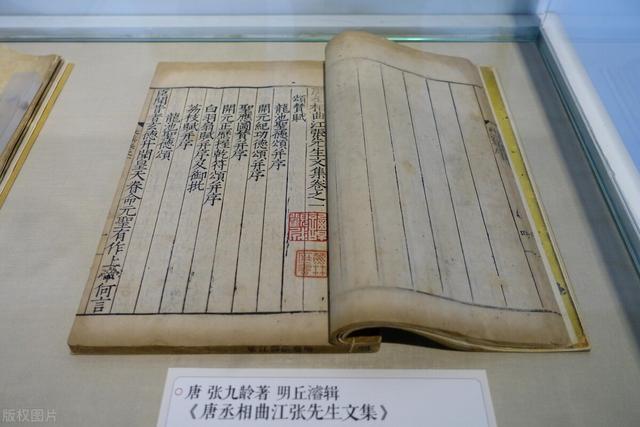 唐丞相曲江張先生文集卷之一
頌賛賦
龍池聖德頌并序
開元紀功德頌并序
聖應圖賛并序
開元正歷握乾符頌并序
白羽扇賦并序又御批
荔枝賦并序
龍池聖德頌
臣聞昔者皇天眷命元聖有作上帝何言
唐 张九龄著 明丘濬辑
《唐丞相曲江张先生文集》
版权图片